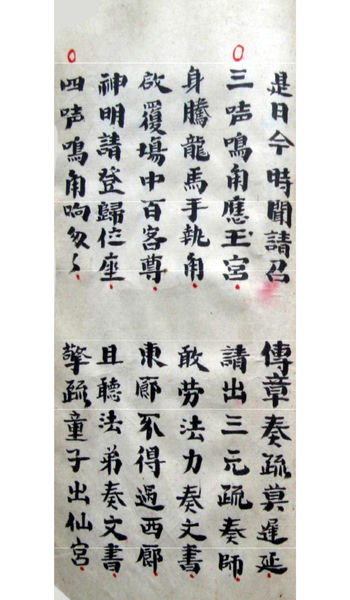 是日今時聞請召 傳章奏疏莫遲延
三声鳴角應玉宮 請出三元疏奏師
身騰龍馬手執角 敢劳法力奏文書
啟覆場中百客尊 東廊不得過西廊
神明請登歸位座 且聽法弟奏文書
四声鳴角响匆々 擎疏童子出仙宮